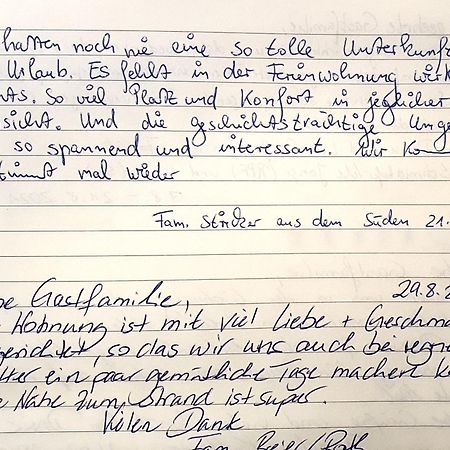 hatten noch nie eine so tolle Unterkunf
Urlaub. Es fehlt in der Ferienwohnung wirk
ts. So viel Platz und Konfort in jeglicher
sicht. Und die geschichtsträchtige Umge
so spannend und interessant. Wir Ko
mal wieder
Fam. aus dem Süden 21.
be Gastfamilie, 29.8.2
Wohnung ist mit viel Liebe + Geschma
gerichtet, so das wir uns auch bei regne
ter ein paar gemütliche Tage machen k
e Nähe zum Strand ist super.
Vielen Dank
Fam.